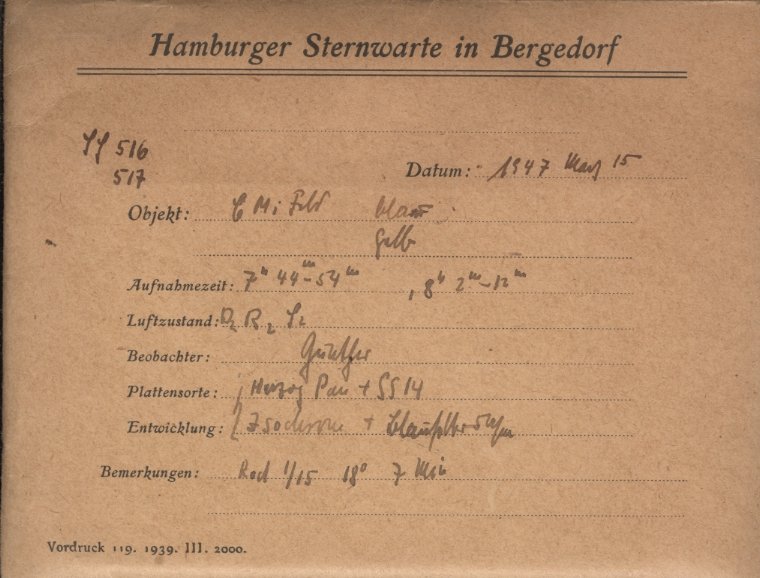 Hamburger Sternwarte in Bergedorf
516
517
Datum: 1947 März 15
Objekt: Feld blau
Gelb
Aufnahmezeit: 7h 44m-54m, 8h 2m-12m
Luftzustand: R2 S2
Beobachter: Günther
Plattensorte: Herzog Pan + SS 14
Entwicklung: Isochrom +
Bemerkungen: Rod 1/15 18° 7 Min
Vordruck 119. 1939. III. 2000.